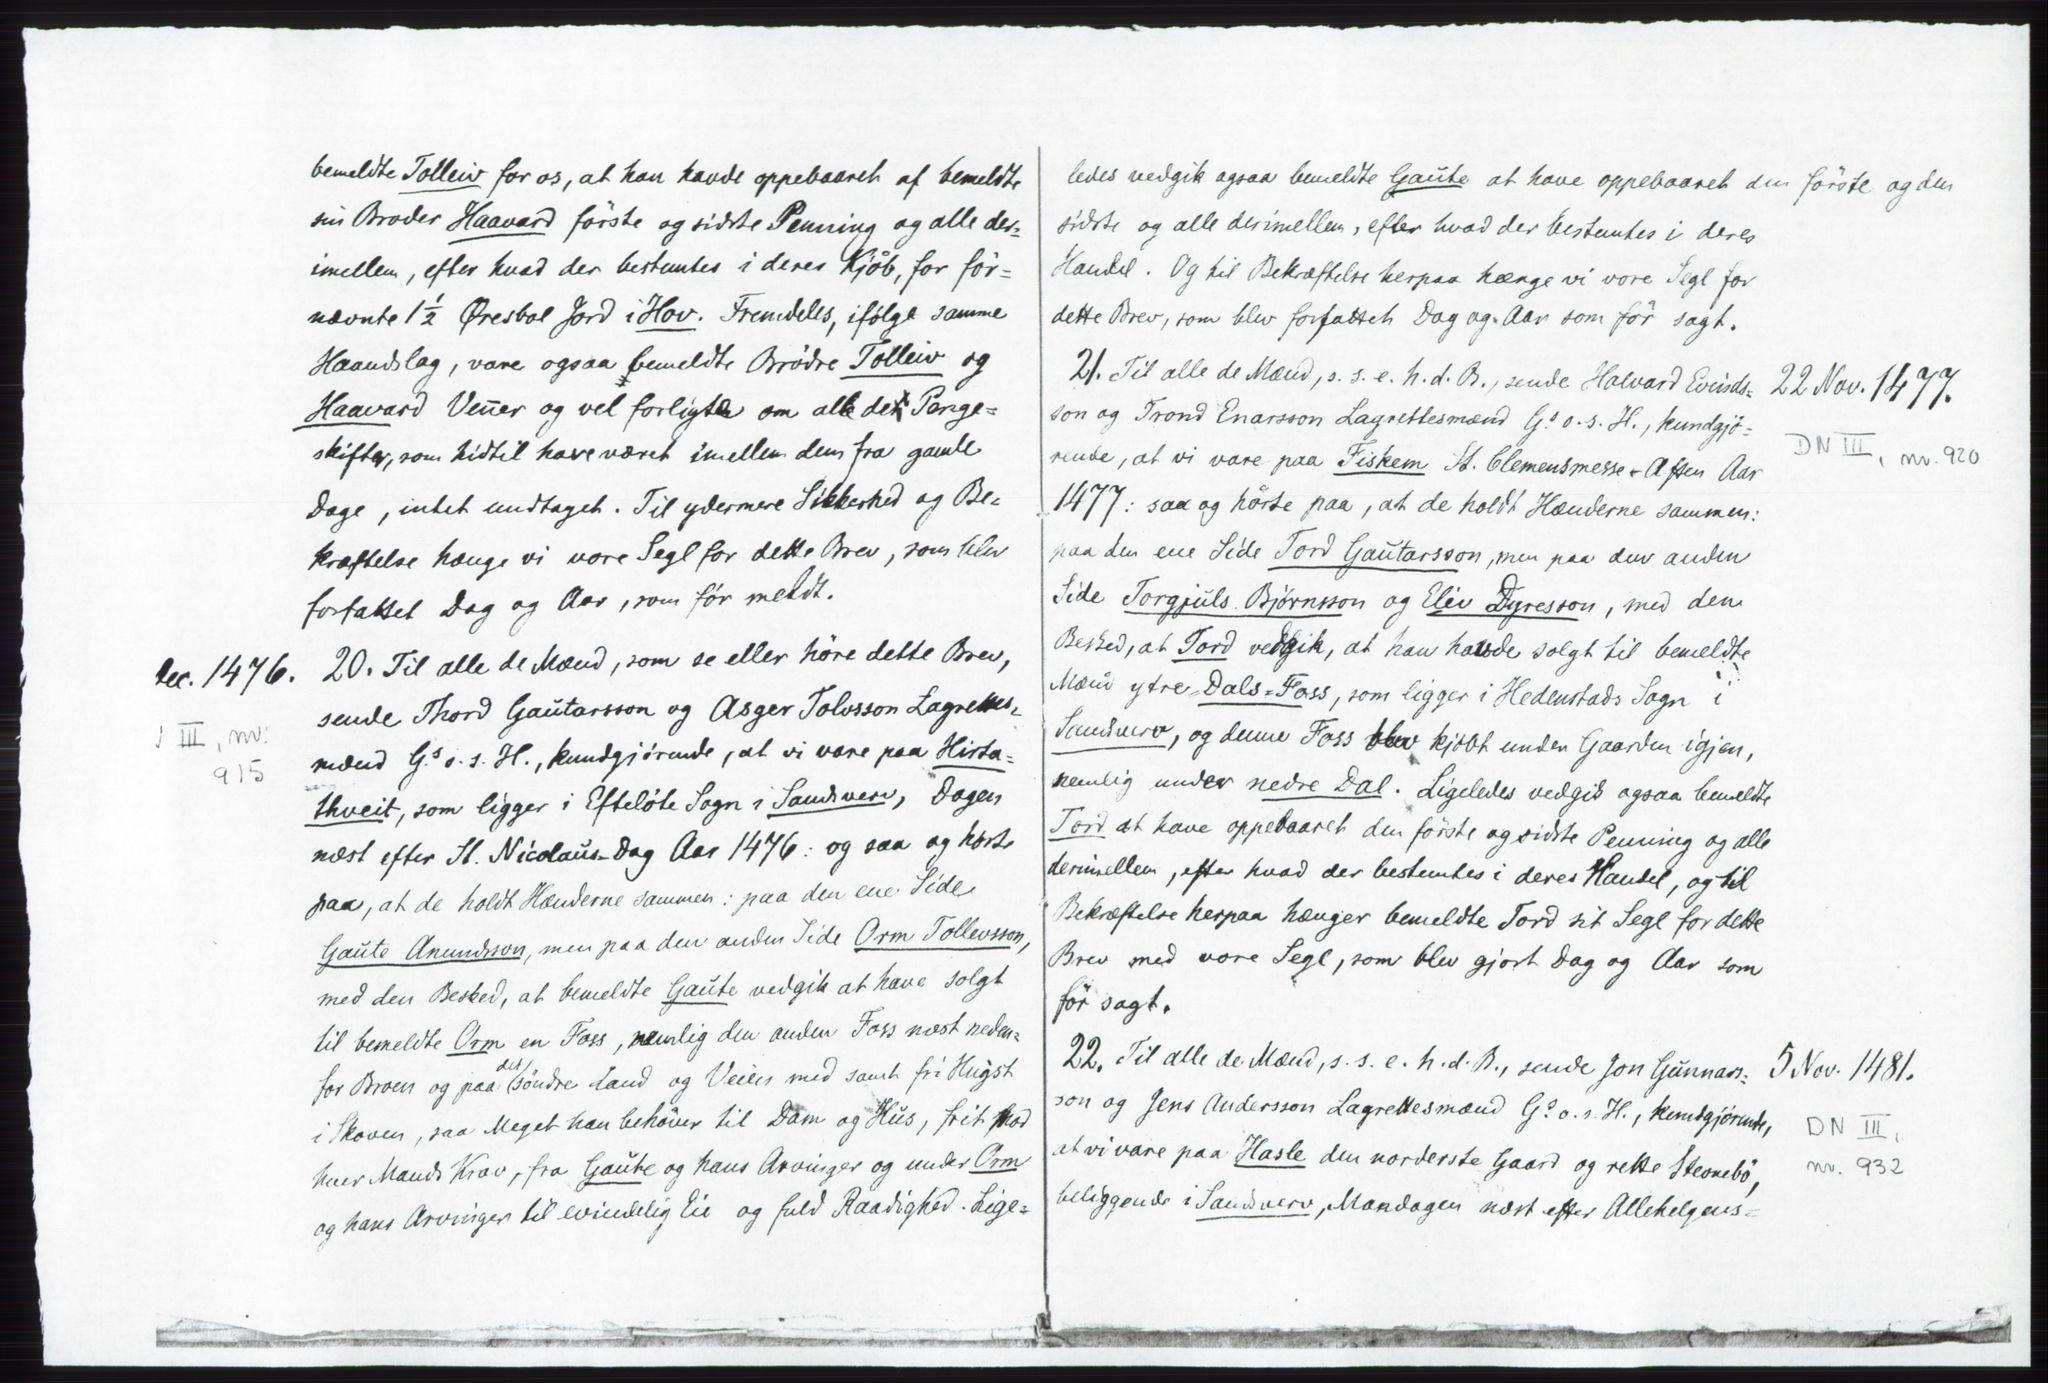 bemeldte Tolleiv for os, at han havde oppebaaret af bemeldte
sin Broder Haavard förste og sidste Penning og alle der=
imellem, efter hvad der bestemtes i deres Kjöb, for för=
nævnte 1 1/2 Øresbol Jord i Hov. Fremdeles, ifölge samme
Haandslag, vare ogsaa bemeldte Brödre Tolleiv og
Haavard Venner og vel forligte om alle de Penge=
skifter, som hidtil have været imellem dem fra gamle
Dage, intet undtaget. Til ydermere Sikkerhed og Be=
kræftelse hænge vi vore Segl for dette Brev, som blev
forfattet Dag og Aar, som för meldt.
Dec. 1476.
20. Til alle de Mænd, som se eller höre dette Brev,
sende Thord Gautarsson og Asger Tolvsson Lagrettes=
III, nr.
915
mænd G.s o. s. H., kundgjörende, at vi vare paa Hirta=
thveit, som ligger i Efteløte Sogn i Sandsverv, Dagen
næst efter St. Nicolaus-Dag Aar 1476: og saa og hörte
paa, at de holdt Hænderne sammen: paa den ene Side
Gaute Anundsson, men paa den anden Side Orm Tollevsson,
med den Besked, at bemeldte Gaute vedgik at have solgt
til bemeldte Orm en Foss, nemlig den anden Foss næst neden=
for Broen og paa det söndre Land og Veien med samt fri Hugst
i Skoven, saa Meget han behöver til Dam og Hus, frit mod
hver Mands Krav, fra Gaute og hans Arvinger og under Orm
og hans Arvinger til evindelig Eie og fuld Raadighed. Lige=
ledes vedgik ogsaa bemeldte Gaute at have oppebaaret den förste og den
sidste og alle derimellem, efter hvad der bestemtes i deres
Handel. Og til Bekræftelse herpaa hænge vi vore Segl for
dette Brev, som blev forfattet Dag og Aar som för sagt.
21. Til alle de Mænd, s. s. e. h. d. B., sende Halvard Evinds=
22 Nov. 1477.
son og Trond Enarsson Lagrettesmænd G.s o. s. H., kundgjö=
DN III, nr. 920
rende, at vi vare paa Fiskem St. Clemensmesse-Aften Aar
1477: saa og hörte paa, at de holdt Hænderne sammen:
paa den ene Side Tord Gautarsson, men paa den anden
Side Torgjuls Björnsson og Eliv Dyresson, med den
Besked, at Tord vedgik, at han havde solgt til bemeldte
Mænd ytre-Dals-Foss, som ligger i Hedenstads Sogn i
Sandsverv, og denne Foss blev kjöbt under Gaarden igjen,
nemlig under nedre Dal. Ligeledes vedgik ogsaa bemeldte
Tord at have oppebaaret den förste og sidste Penning og alle
derimellem, efter hvad der bestemtes i deres Handel, og til
Bekræftelse herpaa hænger bemeldte Tord sit Segl for dette
Brev med vore Segl, som blev gjort Dag og Aar som
för sagt.
22. Til alle de Mænd, s. s. e. h. d. B., sende Jon Gunnars=
5 Nov. 1481.
son og Jens Andersson Lagrettesmænd G.s o. s. H., kundgjörende,
DN III,
nr. 932
at vi vare paa Hasle den norderste Gaard og rette Steonebö,
beliggende i Sandsverv, Mandagen næst efter Allehelgens=